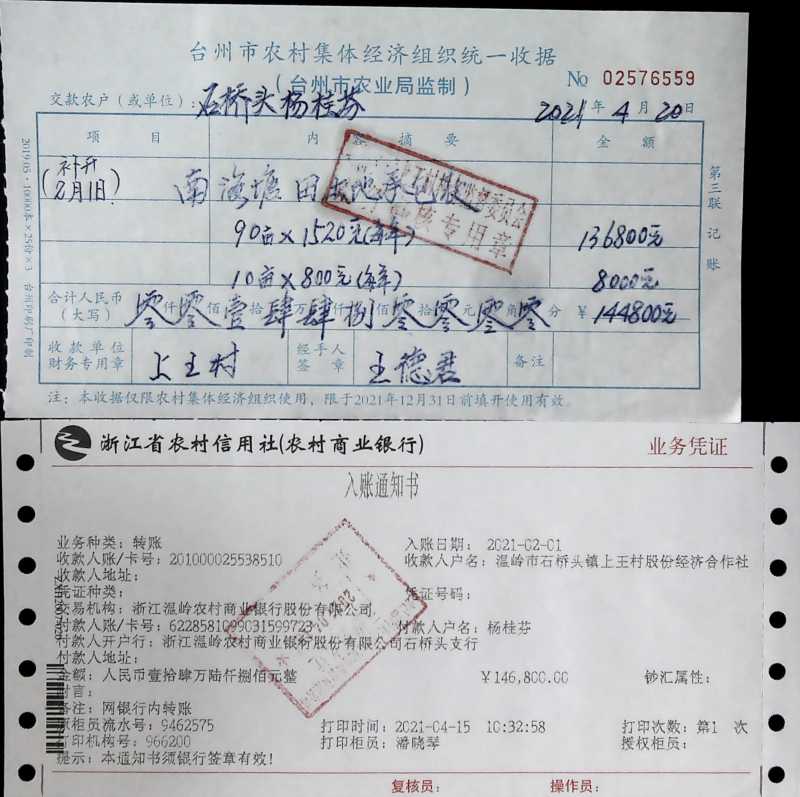 台州市农村集体经济组织统一收据
(台州市农业局监制)
No 02576559
交款农户(或单位): 石桥头杨桂芬 2021年4月20日
项目 内容摘要 金额
(补开2月1日) 南海塘田土地承包款
90亩×1520元(每年) 136800元
10亩×800元(每年) 8000元
合计人民币(大写) 零仟零佰壹拾肆万肆仟捌佰零拾零元零角零分 ¥144800元
收款单位财务专用章 上王村 经手人签章 王德君 备注
注:本收据仅限农村集体经济组织使用,限于2021年12月31日前填开使用有效。
第三联 记账
审核专用章
浙江省农村信用社(农村商业银行) 业务凭证
入账通知书
业务种类: 转账 入账日期: 2021-02-01
收款人账/卡号: 201000025538510 收款人户名: 温岭市石桥头镇上王村股份经济合作社
收款人地址:
凭证种类: 凭证号码:
交易机构: 浙江温岭农村商业银行股份有限公司
付款人账/卡号: 6228581099031599723 付款人户名: 杨桂芬
付款人开户行: 浙江温岭农村商业银行股份有限公司石桥头支行
付款人地址:
金额: 人民币壹拾肆万陆仟捌佰元整 ¥146,800.00 钞汇属性:
附言:
备注: 网银行内转账
原柜员流水号: 9462575 打印时间: 2021-04-15 10:32:58 打印次数: 第1 次
打印机构号: 966200 打印柜员: 潘晓琴 授权柜员:
提示: 本通知书须银行签章有效!
复核员: 操作员: